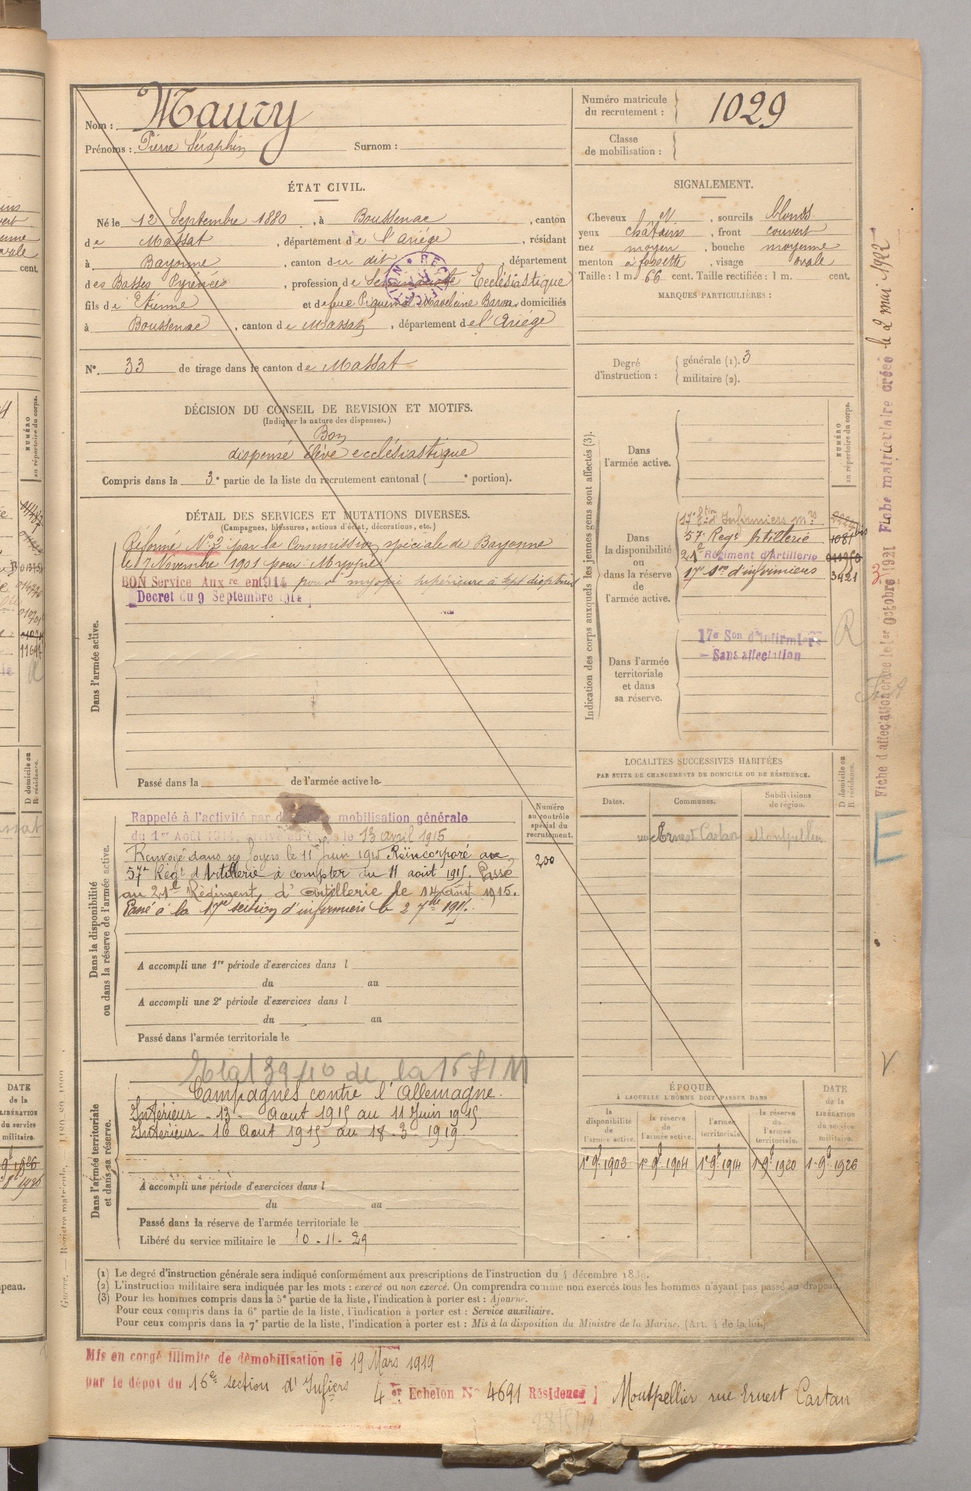 Nom : Maury
Prénoms : Pierre Séraphin Surnom :
Numéro matricule du recrutement : 1029
Classe de mobilisation :
ÉTAT CIVIL.
Né le 12 Septembre 1880, à Boussenac, canton
de Massat, département de l'Ariège, résidant
à Bayonne, canton du dit, département
des Basses Pyrénées, profession de Ecclésiastique
fils de Etienne et de feue Madeleine Baron, domiciliés
à Boussenac, canton de Massat, département de l'Ariège
N° 33 de tirage dans le canton de Massat
SIGNALEMENT.
Cheveux , sourcils blonds
yeux châtains, front couvert
nez moyen, bouche moyenne
menton à fossette, visage ovale
Taille : 1 m. 66 cent. Taille rectifiée : 1 m. cent.
MARQUES PARTICULIÈRES :
Degré d'instruction : générale (1). 3
militaire (2).
DÉCISION DU CONSEIL DE REVISION ET MOTIFS.
(Indiquer la nature des dispenses.)
Bon
dispensé élève ecclésiastique
Compris dans la 3e partie de la liste du recrutement cantonal ( e portion).
DÉTAIL DES SERVICES ET MUTATIONS DIVERSES.
(Campagnes, blessures, actions d'éclat, décorations, etc.)
Dans l'armée active.
Réformé N° 2 par la Commission spéciale de Bayonne
le 7 Novembre 1901 pour Myopie
BON Service Auxre en 1914 pour myopie supérieure à
Decret du 9 Septembre 1914
Passé dans la de l'armée active le
Indication des corps auxquels les jeunes gens sont affectés (3).
NUMÉRO au répertoire du corps.
Dans l'armée active.
Dans la disponibilité ou dans la réserve de l'armée active.
17e Son d'Infirmiers mres
57e Regt Artillerie 1081 bis
21e Régiment d'Artillerie
17e Son d'infirmiers 3421
Dans l'armée territoriale et dans sa réserve.
17e Son d'Infirmiers
- Sans affectation
R
Fiche d'affectation créée le 1er octobre 1921 Fiche matriculaire créée le 2 mai 1922
LOCALITÉS SUCCESSIVES HABITÉES
PAR SUITE DE CHANGEMENTS DE DOMICILE OU DE RÉSIDENCE.
Dates. Communes. Subdivisions de région. D domicile ou R résidence.
rue Ernest Castan Montpellier
Dans la disponibilité ou dans la réserve de l'armée active.
Numéro au contrôle spécial du recrutement.
200
Rappelé à l'activité par mobilisation générale
du 1er Août 1914. le 13 avril 1915
Renvoyé dans ses foyers le 11 Juin 1915 Réincorporé au
57e Régt d'Artillerie à compter du 11 août 1915. Passé
au 21e Régiment d'Artillerie le 14 Août 1915.
Passé à la 17e section d'infirmiers le 2 7bre 1915.
A accompli une 1re période d'exercices dans l
du au
A accompli une 2e période d'exercices dans l
du au
Passé dans l'armée territoriale le
Dans l'armée territoriale et dans sa réserve.
de la 16 SIM
Campagnes contre l'Allemagne.
Intérieur - 13 Aout 1915 au 11 Juin 1915
Intérieur - 16 Aout 1915 au 18-3-1919
A accompli une période d'exercices dans l
du au
Passé dans la réserve de l'armée territoriale le
Libéré du service militaire le 10-11-29
ÉPOQUE
À LAQUELLE L'HOMME DOIT PASSER DANS
la disponibilité de l'armée active. la réserve de l'armée active. l'armée territoriale. la réserve de l'armée territoriale. DATE de la LIBÉRATION du service militaire.
1er 9bre 1903 1er 9bre 1904 1er 9bre 1914 1er 9bre 1920 1er 9bre 1926
(1) Le degré d'instruction générale sera indiqué conformément aux prescriptions de l'instruction du 4 décembre 1889.
(2) L'instruction militaire sera indiquée par les mots : exercé ou non exercé. On comprendra comme non exercés tous les hommes n'ayant pas passé au drapeau.
(3) Pour les hommes compris dans la 5e partie de la liste, l'indication à porter est : Ajourné.
Pour ceux compris dans la 6e partie de la liste, l'indication à porter est : Service auxiliaire.
Pour ceux compris dans la 7e partie de la liste, l'indication à porter est : Mis à la disposition du Ministre de la Marine. (Art. 4 de la loi.)
Mis en congé illimité de démobilisation le 19 Mars 1919
par le dépôt du 16e section d'Infiers 4er Echelon N° 4691 Résidence ] Montpellier rue Ernest Castan